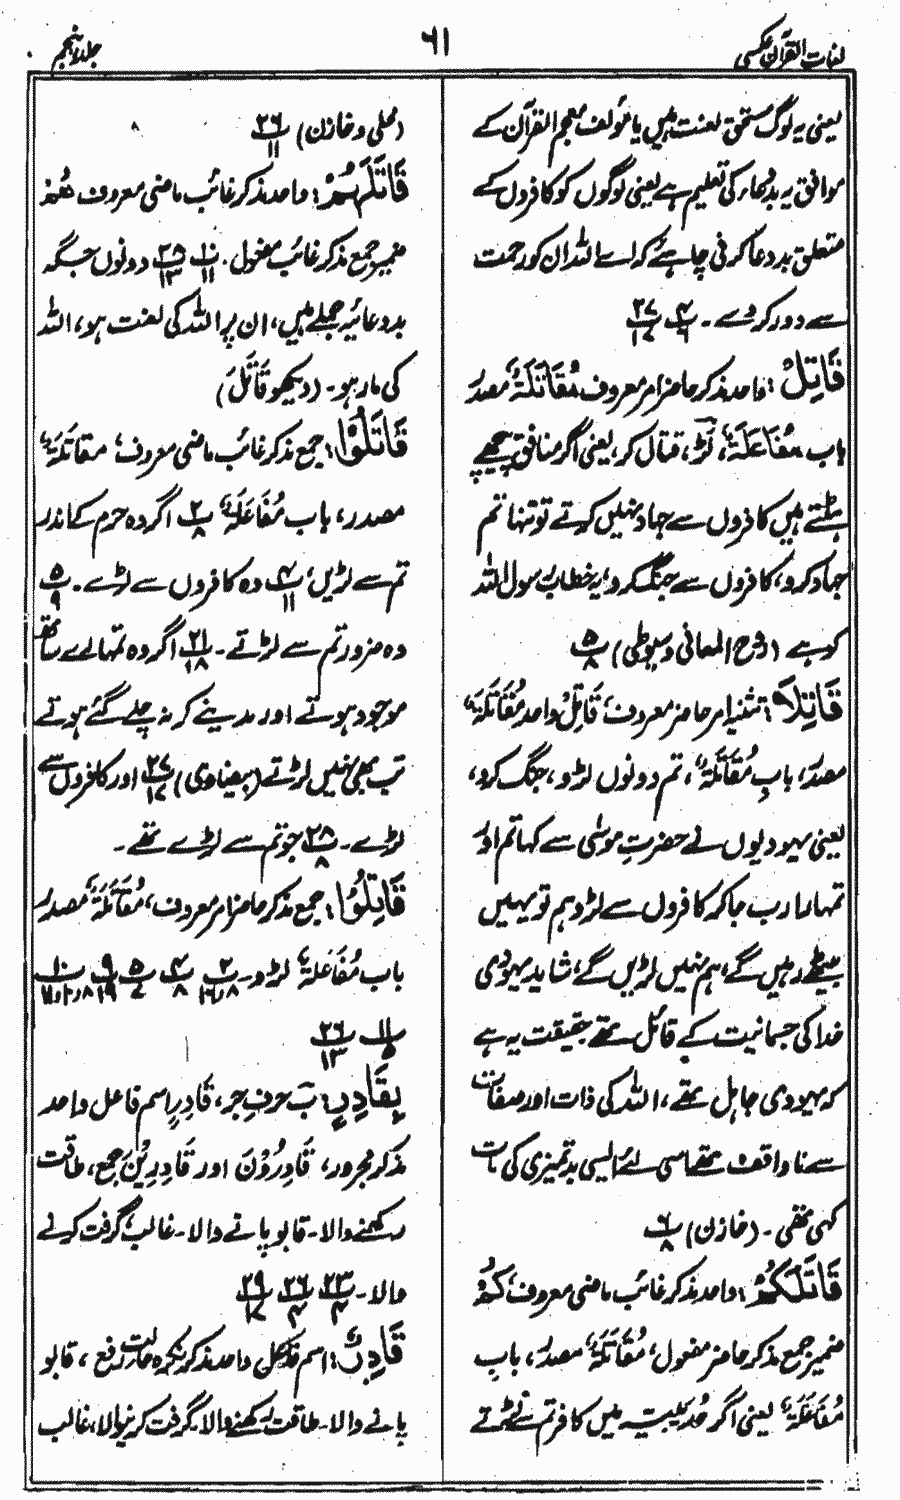 لغات القرآن عکسی
۶۱
جلد پنجم
یعنی یہ لوگ مستحق لعنت ہیں یا مؤلف معجم القرآن کے
موافق یہ بددعا کی تعلیم ہے یعنی لوگوں کو کافروں کے
متعلق بددعا کرنی چاہئے کہ اے اللہ ان کو رحمت
سے دور کر دے۔
قَاتِلْ: واحد مذکر حاضر امر معروف مُقَاتَلَةٌ مصدر
باب مُفَاعَلَةٌ، لڑ، قتال کر، یعنی اگر منافق پیچھے
ہٹتے ہیں کافروں سے جہاد نہیں کرتے تو تنہا تم
جہاد کرو، کافروں سے جنگ کرو، یہ خطاب رسول اللہ
کو ہے (روح المعانی وسیوطی) ۵/۸
قَاتِلَا: تثنیہ امر حاضر معروف، قَاتِلْ واحد مُقَاتَلَةٌ
مصدر، باب مُفَاعَلَةٌ، تم دونوں لڑو، جنگ کرو،
یعنی یہودیوں نے حضرت موسٰی سے کہا تم اور
تمہارا رب جا کر کافروں سے لڑو ہم تو یہیں
بیٹھے رہیں گے، ہم نہیں لڑیں گے، شاید یہودی
خدا کی جسمانیت کے قائل تھے حقیقت یہ ہے
کہ یہودی جاہل تھے، اللہ کی ذات اور صفات
سے ناواقف تھے اسی لئے ایسی بدتمیزی کی بات
کہی تھی۔ (خازن) ۶/۸
قَاتَلَكُمْ: واحد مذکر غائب ماضی معروف، كُمْ
ضمیر جمع مذکر حاضر مفعول، مُقَاتَلَةٌ مصدر، باب
مُفَاعَلَةٌ یعنی اگر حُدَیبیہ میں کافر تم سے لڑتے
(محلی و خازن) ۲۶/۱۱
قَاتَلَهُمْ: واحد مذکر غائب ماضی معروف هُمْ
ضمیر جمع مذکر غائب مفعول۔ ۱۰/۱۱ ۲۸/۱۳ دونوں جگہ
بددعائیہ جملے ہیں، ان پر اللہ کی لعنت ہو، اللہ
کی مار ہو۔ (دیکھو قَاتَلَ)
قَاتَلُوْا: جمع مذکر غائب ماضی معروف، مقاتَلَةٌ
مصدر، باب مُفَاعَلَةٌ ۲/۸ اگر وہ حرم کے اندر
تم سے لڑیں، ۴/۱۱ وہ کافروں سے لڑے۔ ۵/۹
وہ ضرور تم سے لڑتے۔ ۲۱/۱۸ اگر وہ تمہارے ساتھ
موجود ہوتے اور مدینے کر نہ چلے گئے ہوتے
تب بھی نہیں لڑتے (بیضاوی) ۲۷/۱۷ اور کافروں سے
لڑے۔ ۲۸/۸ جو تم سے لڑے تھے۔
قَاتِلُوْا: جمع مذکر حاضر امر معروف، مُقَاتَلَةٌ مصدر
باب مُفَاعَلَةٌ لڑو۔
۱۱/۵ ۲۶/۱۳
بِقَادِرٍ: بَ حرف جر، قَادِرٍ اسم فاعل واحد
مذکر مجرور، قَادِرُوْنَ اور قَادِرِيْنَ جمع، طاقت
رکھنے والا۔ قابو پانے والا۔ غالب، گرفت کرنے
والا۔ ۲۳/۴ ۲۶/۴ ۲۹/۱۷
قَادِرٌ: اسم فاعل واحد مذکر نکرہ حالت رفع، قابو
پانے والا۔ طاقت رکھنے والا۔ گرفت کرنیوالا، غالب